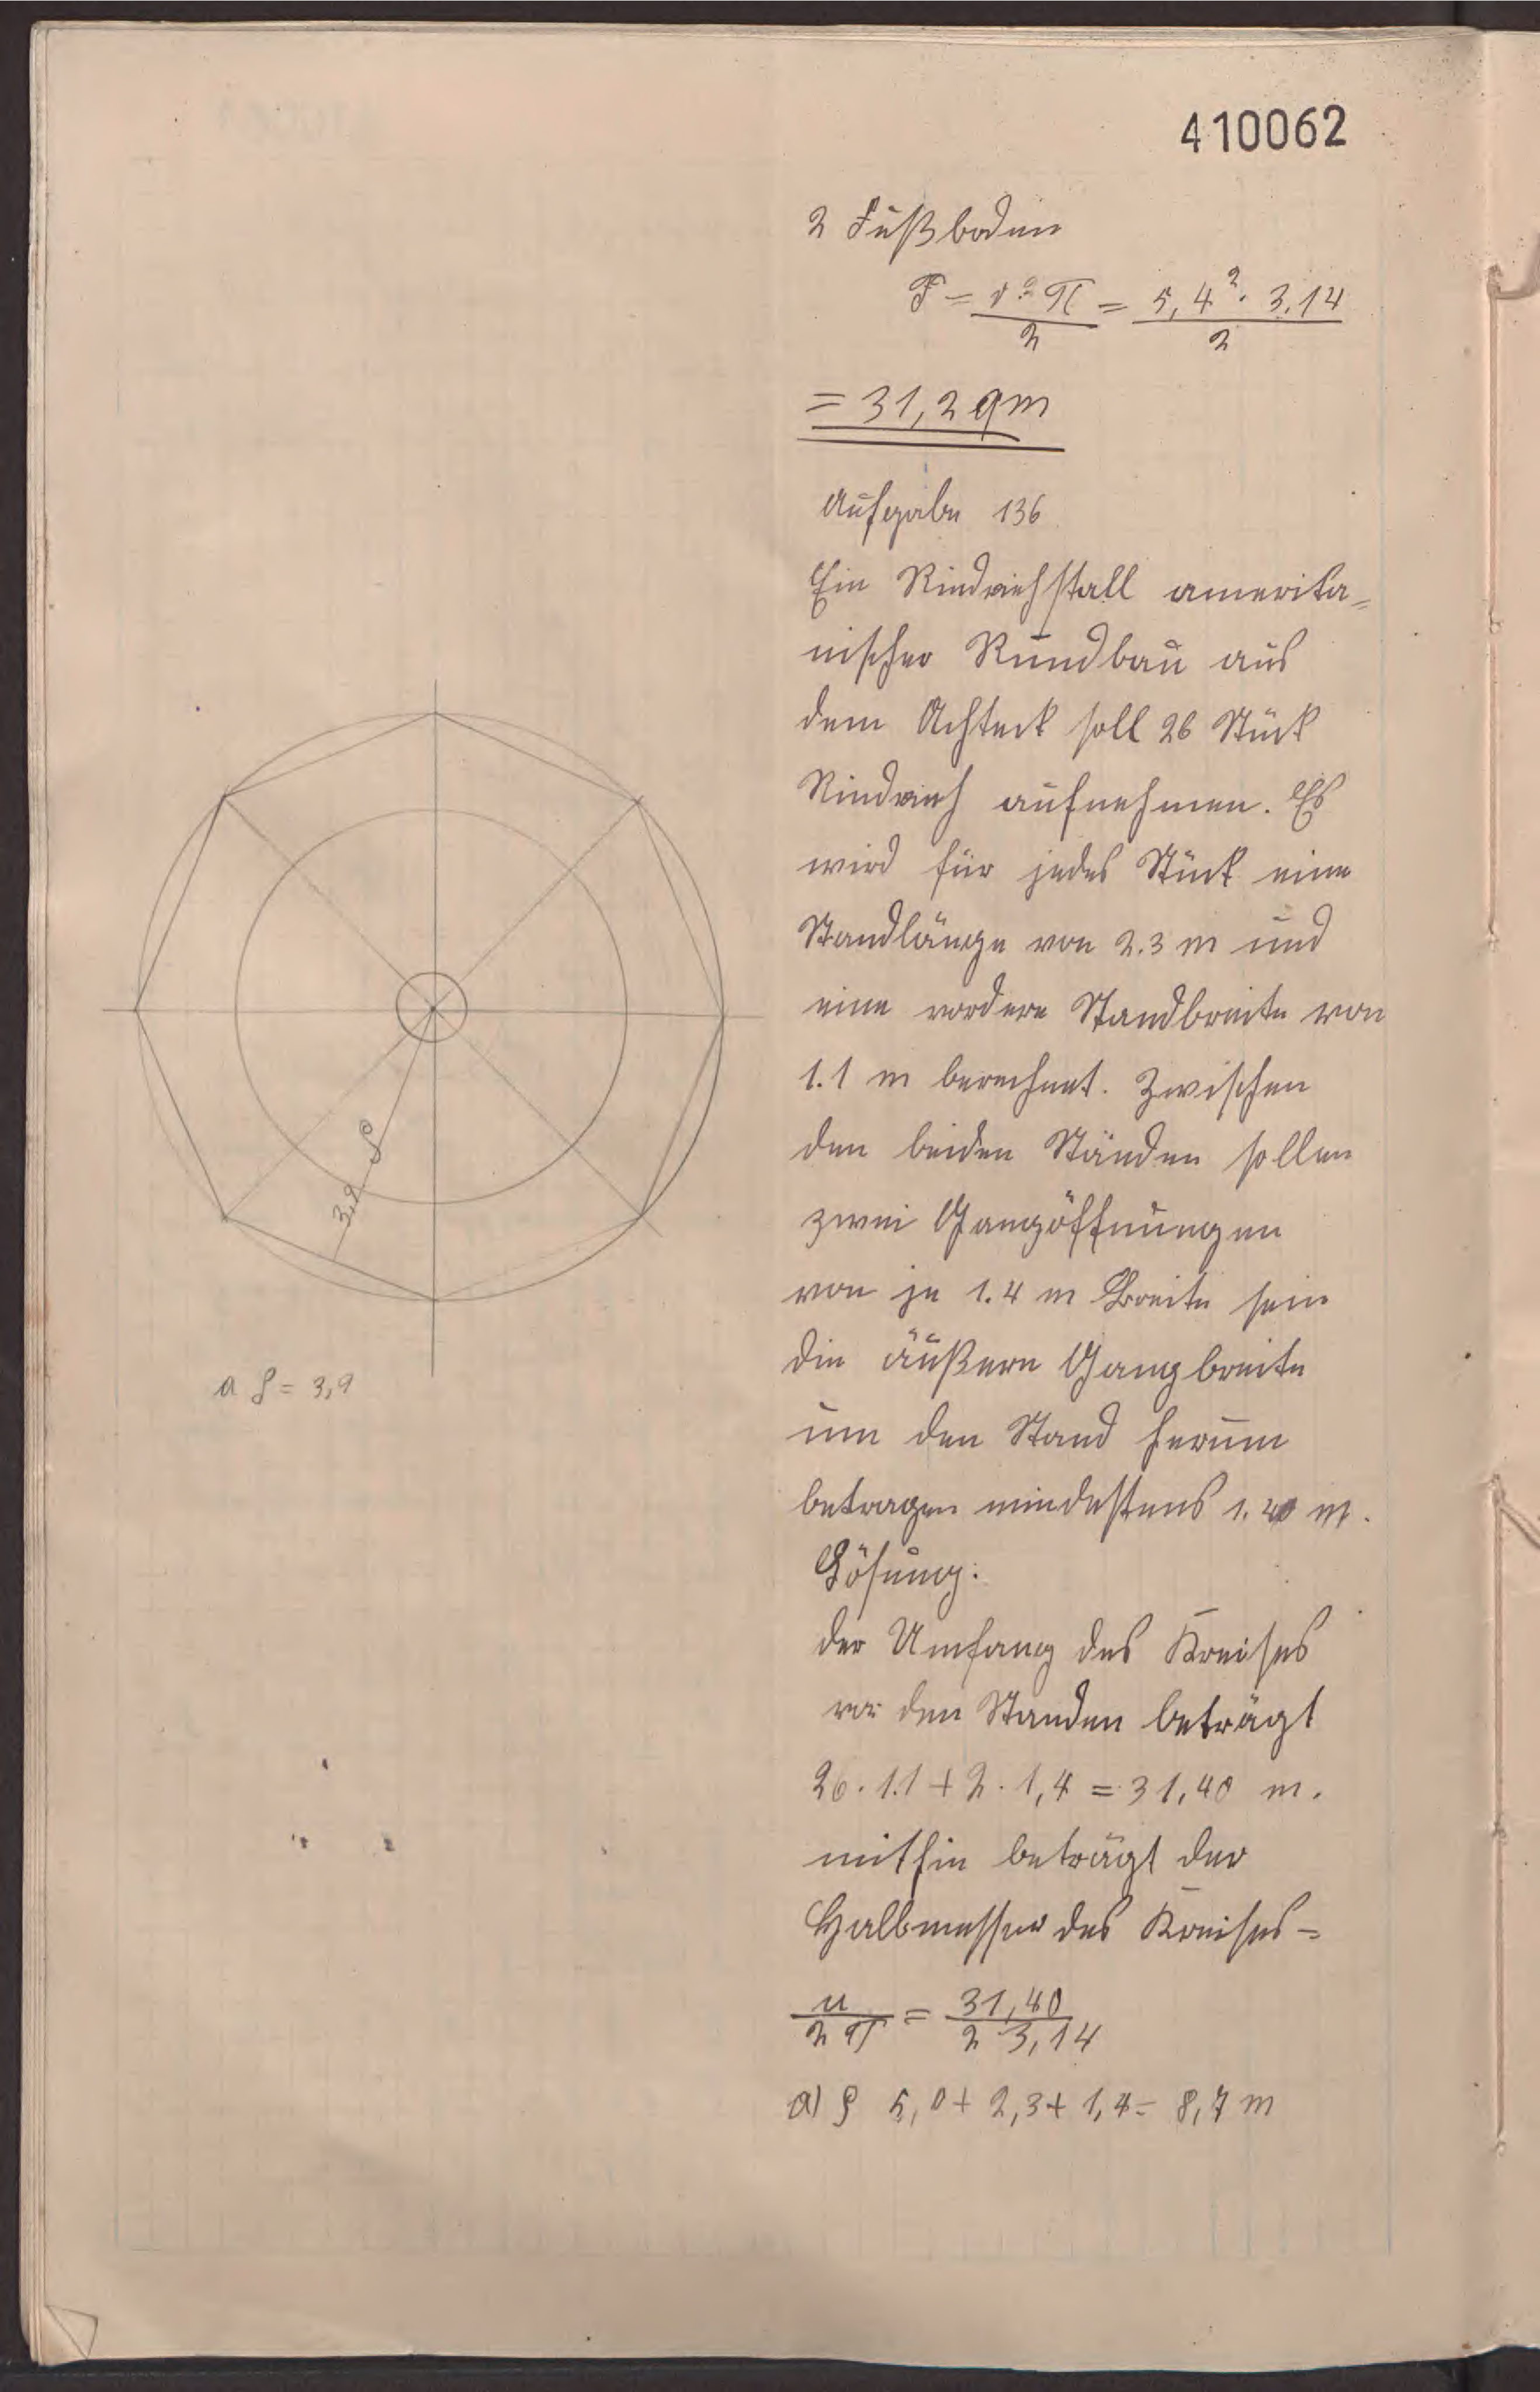 410062
2 Fußboden
F = r² π / 2 = 5,4² · 3,14 / 2
= 31,2 qm
Aufgabe 136
Ein Rindviehstall amerika=
nischer Rundbau aus
dem Achteck soll 26 Stück
Rindvieh aufnehmen. Es
wird für jedes Stück eine
Standlänge von 2.3 m und
eine vordere Standbreite von
1.1 m berechnet. Zwischen
den beiden Ständen sollen
zwei Gangöffnungen
von je 1.4 m Breite sein
die äußere Gangbreite
um den Stand herum
betragen mindestens 1.40 m.
Lösung:
der Umfang des Kreises
vor den Standen beträgt
26 · 1.1 + 2 · 1,4 = 31,40 m.
mithin beträgt der
Halbmesser des Kreises =
u / 2 π = 31,40 / 2 · 3,14
a) ϱ 5,0 + 2,3 + 1,4 = 8,7 m
3,9 ϱ
a ϱ = 3,9